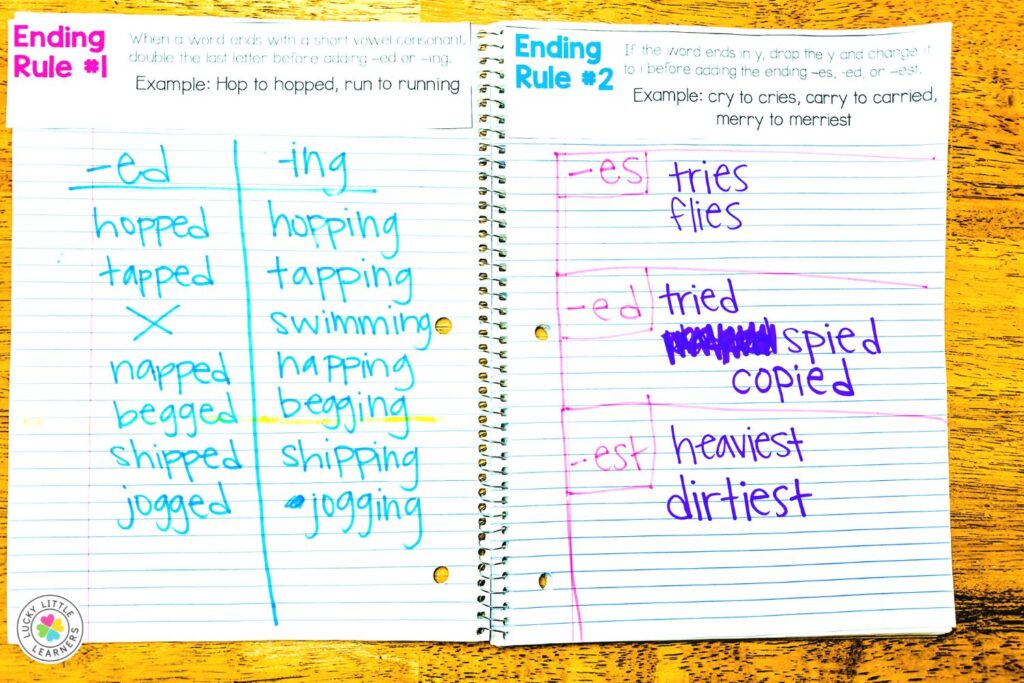 Ending
Rule #1
When a word ends with a short vowel consonant,
double the last letter before adding -ed or -ing.
Example: Hop to hopped, run to running
-ed -ing
hopped hopping
tapped tapping
X swimming
napped happing
begged begging
shipped shipping
jogged jogging
Ending
Rule #2
If the word ends in y, drop the y and change it
to i before adding the ending -es, -ed, or -est.
Example: cry to cries, carry to carried,
merry to merriest
-es tries
flies
-ed tried
spied
copied
-est heaviest
dirtiest
LUCKY LITTLE
LEARNERS